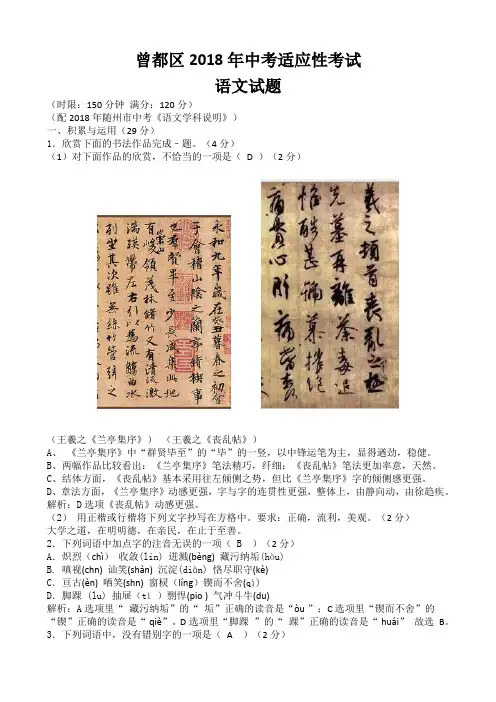 曾都区 2018 年中考适应性考试
语文试题
（时限：150 分钟 满分：120 分）
（配 2018 年随州市中考《语文学科说明》）
一、积累与运用（29 分）
1．欣赏下面的书法作品完成﹣题。（4 分）
（1）对下面作品的欣赏，不恰当的一项是（ D ）（2 分）
永和九年歲在癸丑暮春之初會
于會稽山陰之蘭亭脩稧事
也羣賢畢至少長咸集此地
有崇山峻領茂林脩竹又有清流激
湍暎帶左右引以為流觴曲水
列坐其次雖無絲竹管弦之
羲之頓首喪亂之極
先墓再離荼毒追
惟酷甚號慕摧絕
痛貫心肝痛當奈
（王羲之《兰亭集序》） （王羲之《丧乱帖》）
A、 《兰亭集序》中“群贤毕至”的“毕”的一竖，以中锋运笔为主，显得遒劲，稳健。
B、两幅作品比较看出：《兰亭集序》笔法精巧，纤细；《丧乱帖》笔法更加率意，天然。
C、结体方面，《丧乱帖》基本采用往左倾侧之势，但比《兰亭集序》字的倾侧感更强。
D、章法方面，《兰亭集序》动感更强，字与字的连贯性更强，整体上，由静向动，由徐趋疾。
解析：D 选项《丧乱帖》动感更强。
（2） 用正楷或行楷将下列文字抄写在方格中。要求：正确，流利，美观。（2 分）
大学之道，在明明德，在亲民，在止于至善。
2．下列词语中加点字的注音无误的一项（ B ）（2 分）
A．炽烈（chì） 收敛(lin) 迸溅(bèng) 藏污纳垢(hòu)
B．嗔视(chn) 讪笑(shàn) 沉淀(diàn) 恪尽职守(kè)
C．亘古(èn) 哂笑(shn) 窗棂（líng）锲而不舍(qì)
D．脚踝 (lu) 抽屉（tì ）剽悍(pio ) 气冲斗牛(du)
解析：A 选项里“ 藏污纳垢”的“ 垢”正确的读音是“òu ”；C 选项里“锲而不舍”的
“锲”正确的读音是“ qiè”。D 选项里“脚踝 ”的“ 踝”正确的读音是“ huái” 故选 B。
3．下列词语中，没有错别字的一项是（ A ）（2 分）